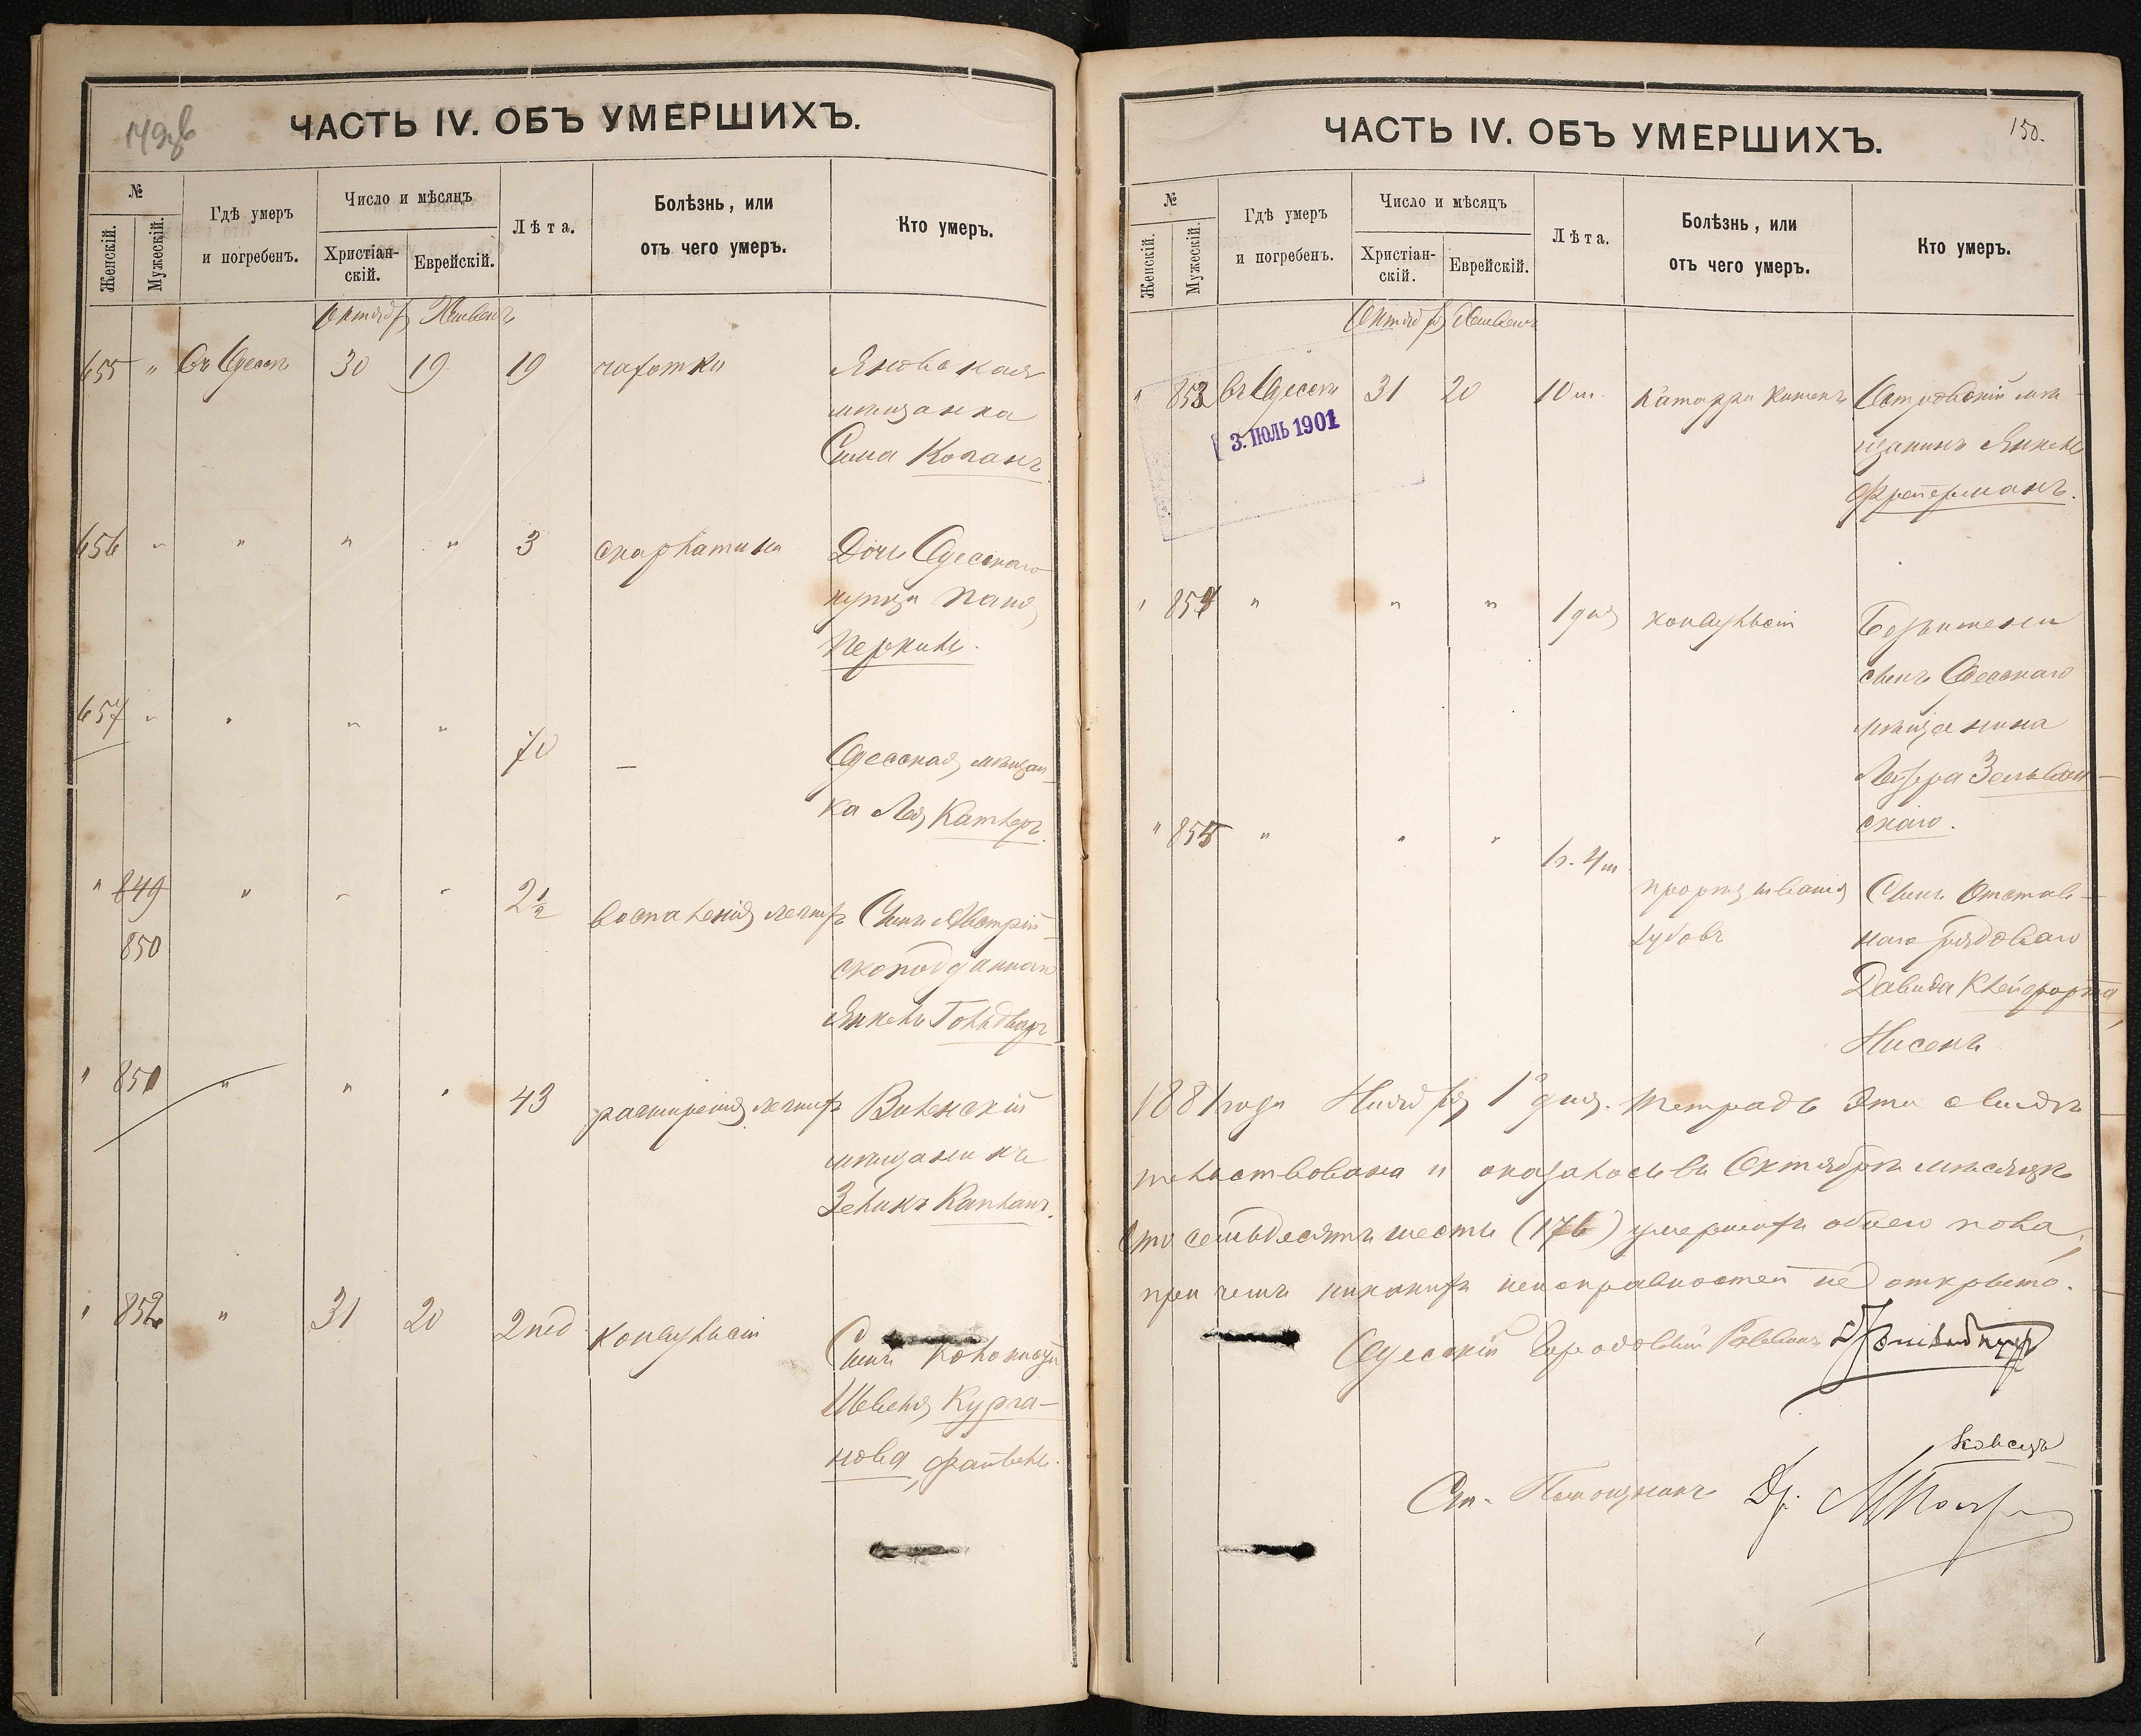 149об
ЧАСТЬ IV. ОБЪ УМЕРШИХЪ.
№
Женскій.
Мужескій.
Гдѣ умеръ
и погребенъ.
Число и мѣсяцъ
Христіан-
скій.
Еврейскій.
Лѣта.
Болѣзнь, или
отъ чего умеръ.
Кто умеръ.
Октябрь Хешвонъ
655 " Въ Одессѣ 30 19 19 чахотки Яновская
мѣщанка
Сима Коганъ
656 " " " " 3 скарлатина Дочь Одесскаго
купца Папо
Перкинъ.
657 " " " "
70 — Одесская мѣщан-
ка Лея Катлеръ.
" 849 " " " 2½ воспаленія легкихъ Сынъ Австрій-
850 скоподданнаго
Янкель Гольдваръ
" 851 " " " 43 расширенія легкихъ Виленскій
мѣщанинъ
Зеликъ Капланъ.
" 852 " 31 20 2 нед конвульсіи Сынъ колониста
Шевеля Курга-
нова, Файвель.
ЧАСТЬ IV. ОБЪ УМЕРШИХЪ.
150.
№
Женскій.
Мужескій.
Гдѣ умеръ
и погребенъ.
Число и мѣсяцъ
Христіан-
скій.
Еврейскій.
Лѣта.
Болѣзнь, или
отъ чего умеръ.
Кто умеръ.
Октябрь Хешвонъ
" 853 въ Одессѣ 31 20 10 м. катарра кишекъ Островскій мѣ-
3. ІЮЛЬ 1901
щанинъ Янкель
Фрейерманъ.
" 854 " " " 1 дня конвульсіи Безъимени
сынъ Одесскаго
мѣщанина
Лейзера Зельван-
скаго.
" 855 " " " 1 г. 4 м
прорѣзыванія Сынъ Отстав-
зубовъ наго рядоваго
Давида Клейфорта,
Нисенъ
1881 года Ноября 1го дня. Тетрадь эта свидѣ-
тельствована и оказалось въ Октябрѣ мѣсяцѣ
сто семьдесятъ шесть (176) умершихъ обоего пола,
при чемъ никакихъ неисправностей не открыто.
Одесскій Городовой Раввинъ
Ст. Помощникъ Др.